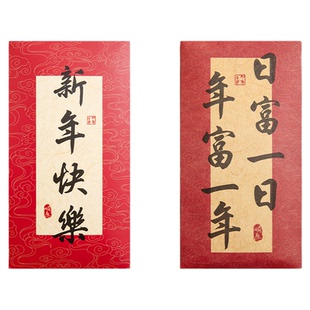 新年快樂
日富一日
年富一年